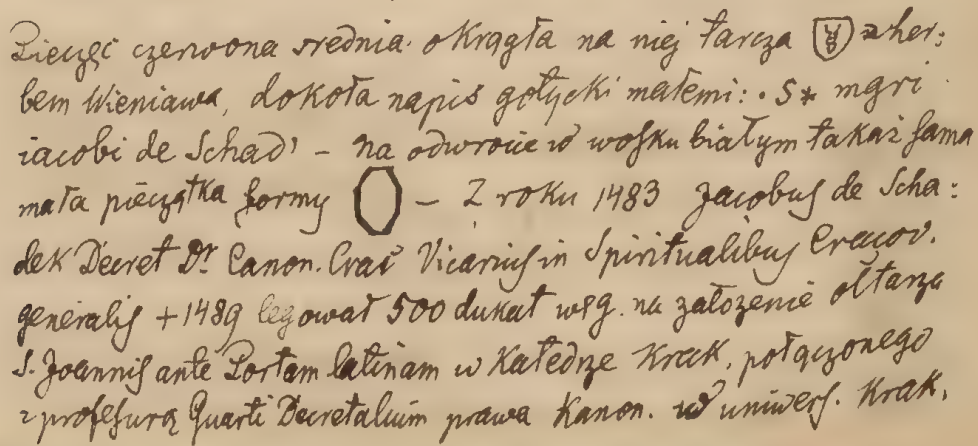 Pieczęć czerwona srednia okrągła na niej tarcza z her:
bem Wieniawa, dokoła napis gotycki małemi: . S* mgri
iacobi de Schad' – na odwrocie w wosku białym takaż sama
mała pieczątka formy – Z roku 1483 Jacobus de Scha:
dek Decret Dr. Canon. Crac Vicarius in Spiritualibus Cracov.
generalis + 1489 legował 500 dukat węg. na założenie ołtarza
S. Joannis ante Portam latinam w Katedrze Krak. połączonego
z profesurą Quarti Decretalium prawa Kanon. w uniwers. Krak.